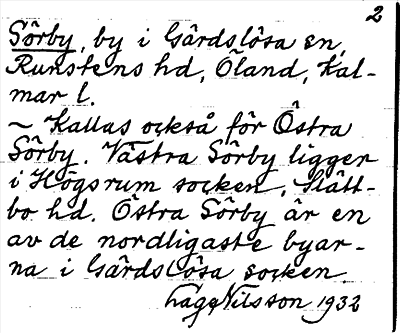 2
Sörby, by i Gårdslösa sn,
Runstens hd, Öland, Kal-
mar l.
~ Kallas också för Östra
Sörby. Västra Sörby ligger
i Högsrum socken, Slätt-
bo hd. Östra Sörby är en
av de nordligaste byar-
na i Gårdslösa socken.
Lage Nilsson 1932